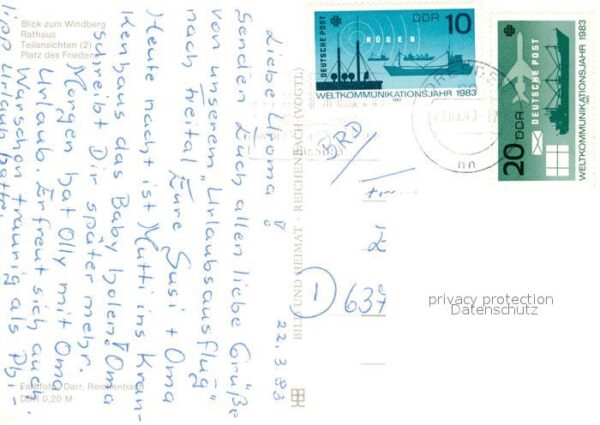 Blick zum Windberg
Rathaus
Teilansichten (2)
Platz des Friedens
22.3.83
Liebe Uroma!
Senden Euch allen liebe Grüße
von unserem „Urlaubsausflug"
nach Freital Eure Susi + Oma
Heute nacht ist Mutti ins Kran-
kenhaus das Baby holen! Oma
schreibt Dir später mehr.
Morgen hat Olly mit Oma
Urlaub. Erfreut sich auch.
War schon traurig als Phi-
lipp Urlaub hatte.
Farbfoto: Darr, Reichenbach
DDR 0,20 M
BILD UND HEIMAT · REICHENBACH (VOGTL)
DEUTSCHE POST
DDR 10
RÜGEN
WELTKOMMUNIKATIONSJAHR 1983
20 DDR
DEUTSCHE POST
WELTKOMMUNIKATIONSJAHR 1983
BRD
1
637
privacy protection
Datenschutz